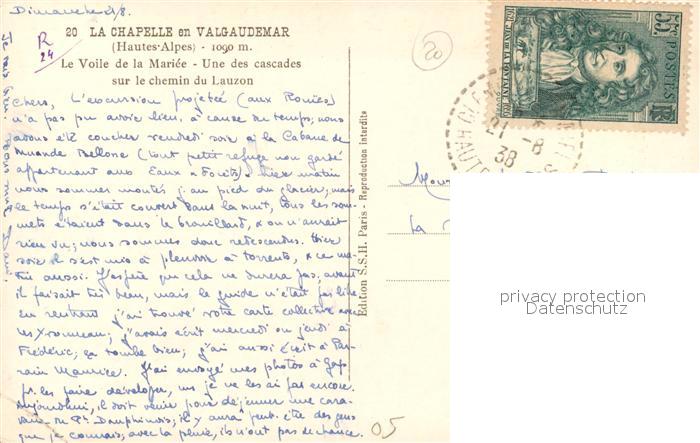 Dimanche 21/8.
20 LA CHAPELLE en VALGAUDEMAR
(Hautes-Alpes) - 1090 m.
Le Voile de la Mariée - Une des cascades
sur le chemin du Lauzon
R
24
20
Chers, L'excursion projetée (aux Rouies)
n'a pas pu avoir lieu, à cause du temps; nous
avons été coucher vendredi soir à la Cabane de
(tout petit refuge non gardé
appartenant aux Eaux & Forêts). Hier matin
nous sommes montés j. au pied du glacier, mais
le temps s'était couvert dans la nuit, tous les som-
mets étaient dans le brouillard, & on n'aurait
rien vu; nous sommes donc redescendus. Hier
soir il s'est mis à pleuvoir à torrents, & ce ma-
tin aussi. J'espère que cela ne durera pas; avant
il faisait très beau, mais le guide n'était pas libre.
en rentrant j'ai trouvé votre carte collective avec
les ; j'avais écrit mercredi ou jeudi à
Frédéric; ça tombe bien; j'ai aussi écrit à Par-
rain Maurice. J'ai envoyé mes photos à Gap
pr. les faire développer, mais je ne les ai pas encore.
Aujourdhui, il doit venir pour déjeuner une cara-
vane du Dauphinois; il y aura peut-être des gens
que je connais; avec la pluie, ils n'ont pas de chance.
Je vais bien.
Edition S.S.H. Paris - Reproduction interdite
POSTES
RF
JEAN DE LA FONTAINE
55c
21 -8
38
HAUTES
la
privacy protection
Datenschutz
05